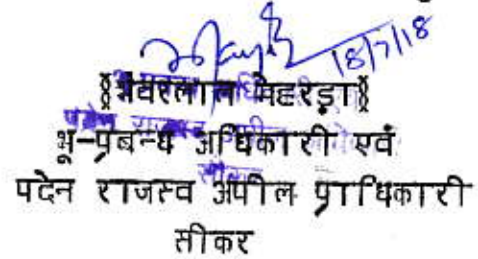 18/7/18
§भंवरलाल मेहरड़ा§
भू-प्रबन्ध अधिकारी एवं
पदेन राजस्व अपील प्राधिकारी
सीकर